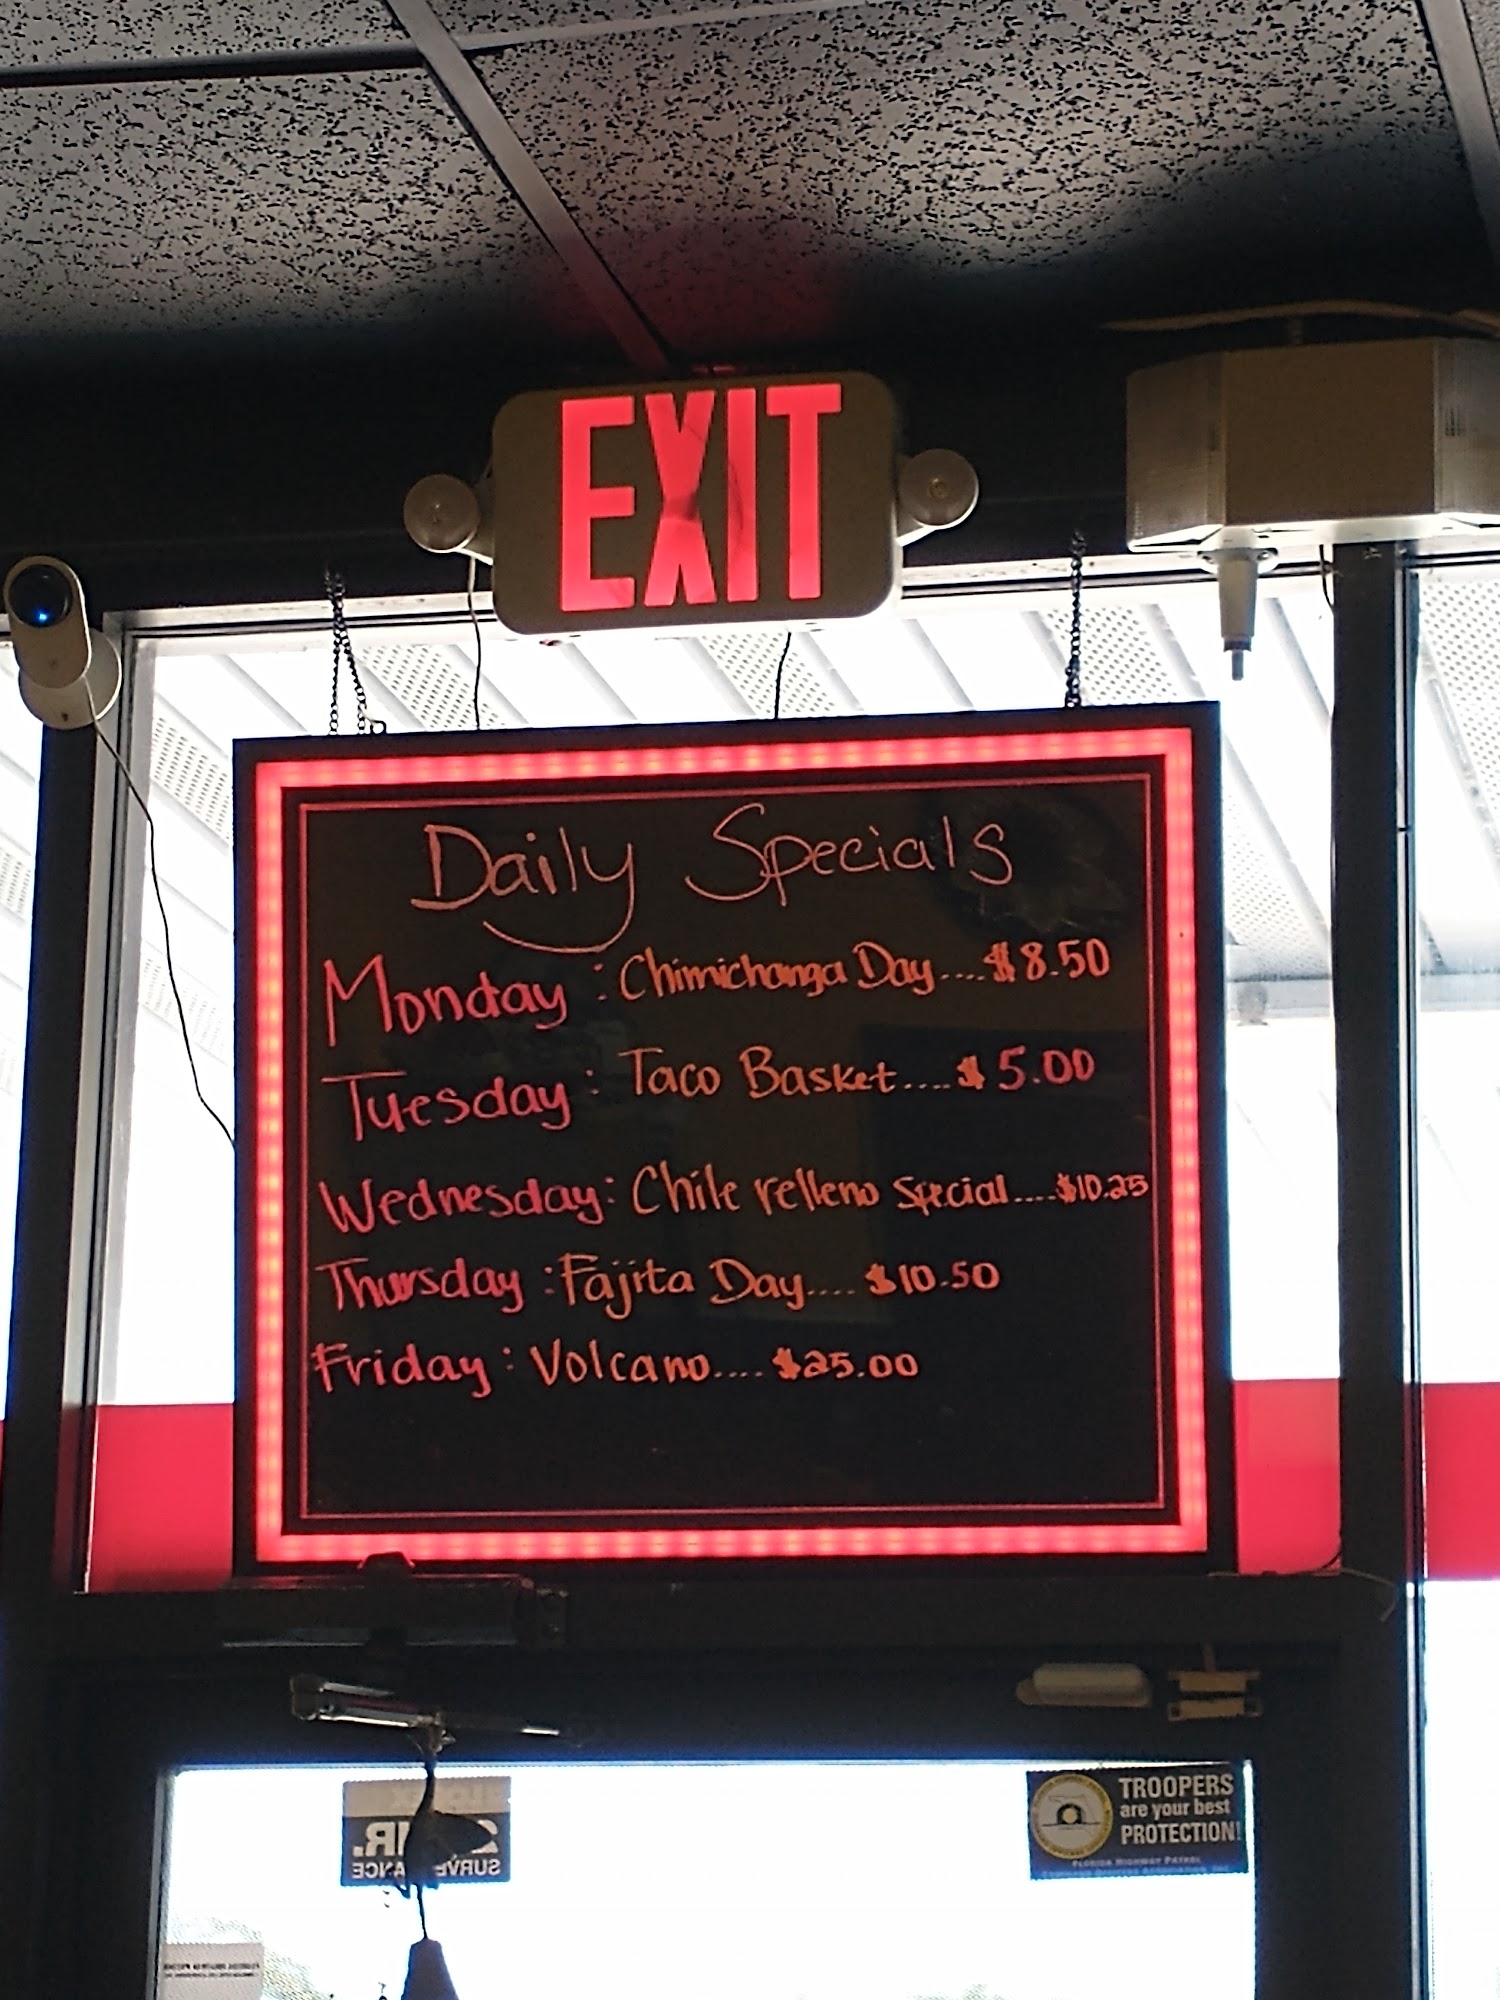 EXIT
Daily Specials
Monday : Chimichanga Day....$8.50
Tuesday : Taco Basket....$5.00
Wednesday: Chile relleno special....$10.25
Thursday : Fajita Day.... $10.50
Friday : Volcano.... $25.00
HR.
SURVEILLANCE
TROOPERS
are your best
PROTECTION!
FLORIDA HIGHWAY PATROL